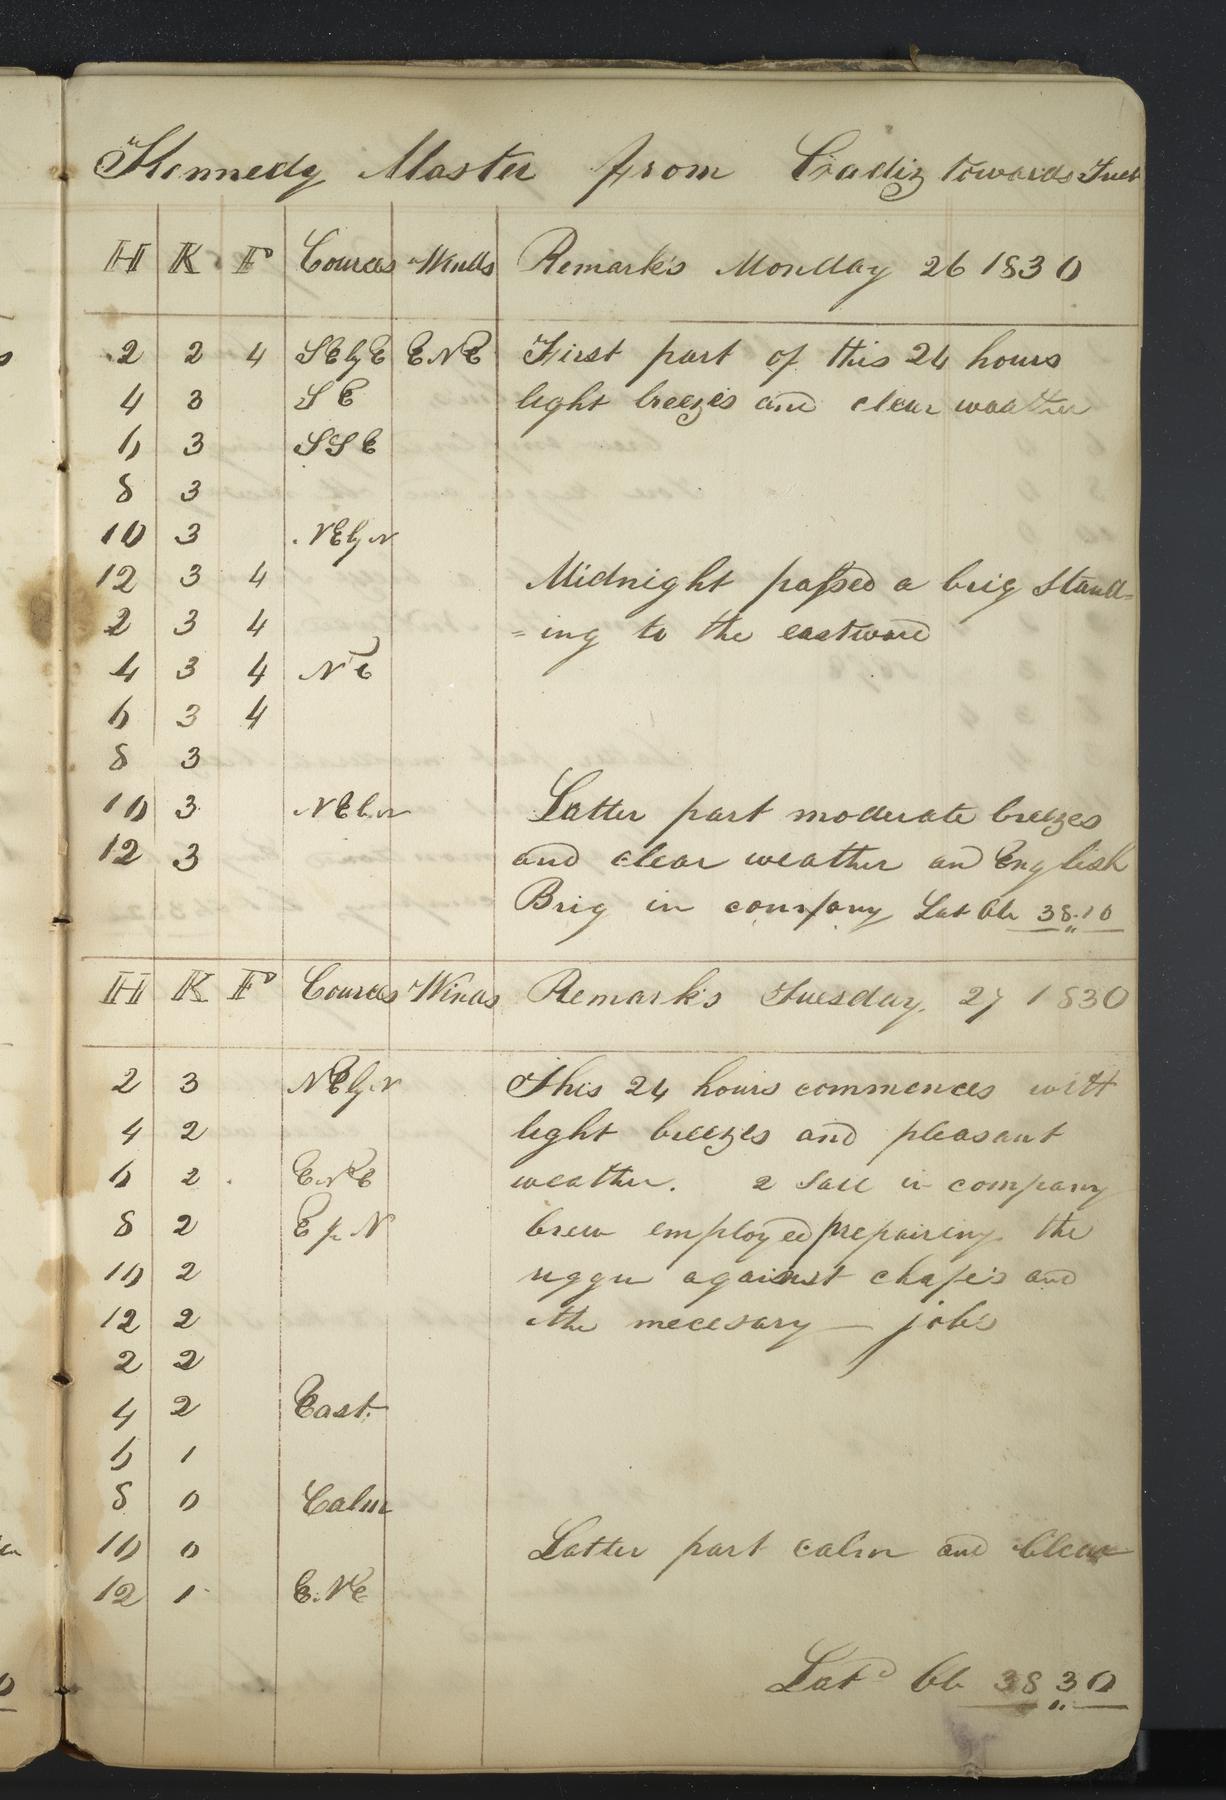 Kennedy Master from Ciadiz towards
H K F Courses Winds Remarks Monday 26 1830
2 2 4 SEbyE ENE First part of this 24 hours
4 3 SE light breezes and clear weather
6 3 SSE
8 3
10 3 NEbyN
12 3 4 Midnight passed a brig stand=
2 3 4 =ing to the eastward
4 3 4 NE
6 3 4
8 3
10 3 NEbN Latter part moderate breezes
12 3 and clear weather an English
Brig in company Lat Ob 38"10
H K F Courses Winds Remarks Tuesday 27 1830
2 3 NEbyN This 24 hours commences with
4 2 light breezes and pleasant
6 2 ENE weather. 2 Sail in company
8 2 E N Crew employed prepairing the
10 2 against chafeis and
12 2 the necesary — jobs
2 2
4 2 East
6 1
8 0 Calm
10 0 Latter part calm and Clear
12 1 E.NE
Latd Ob 38"30